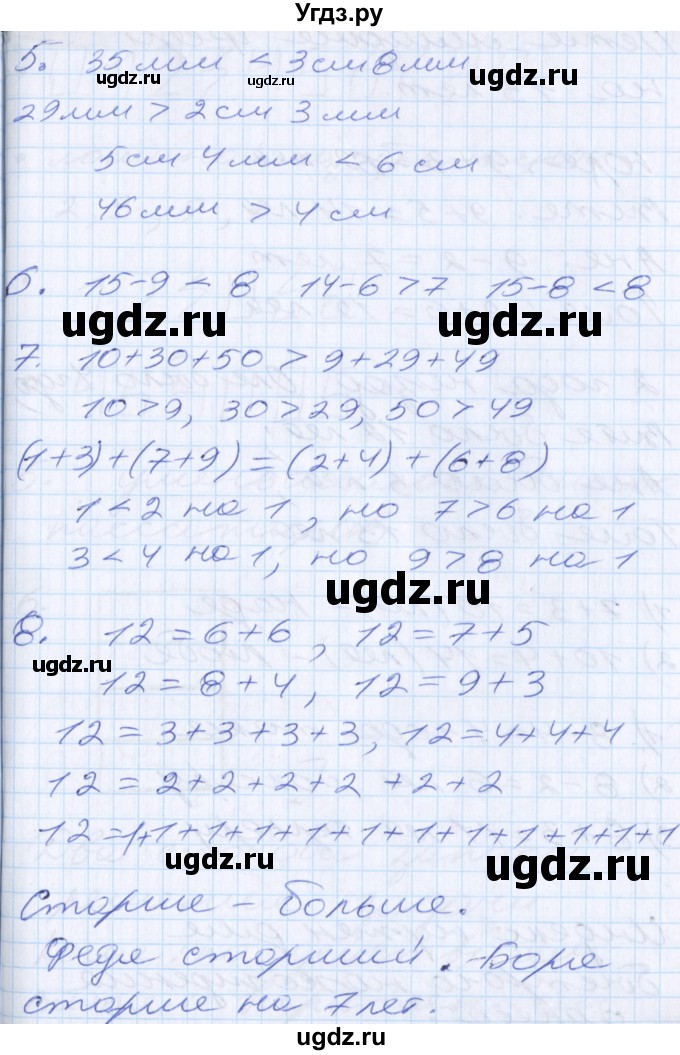 Угдз.ру
5. 35мм < 3см 8мм
ugdz.ru ugdz.ru
29мм > 2см 3мм
ugdz.ru
5см 4мм < 6см
46мм > 4см
6. 15-9 < 8 14-6 > 7 15-8 < 8
ugdz.ru ugdz.ru
7. 10+30+50 > 9+29+49
10>9, 30>29, 50>49
(1+3)+(7+9)=(2+4)+(6+8)
1<2 на 1, но 7>6 на 1
3<4 на 1, но 9>8 на 1
ugdz.ru
8. 12=6+6, 12=7+5
ugdz.ru
12=8+4, 12=9+3
12=3+3+3+3, 12=4+4+4
12=2+2+2+2+2+2
12=1+1+1+1+1+1+1+1+1+1+1+1
ugdz.ru ugdz.ru
Старше - больше.
Федя старший. - Боре
старше на 7 лет.
ugdz.ru